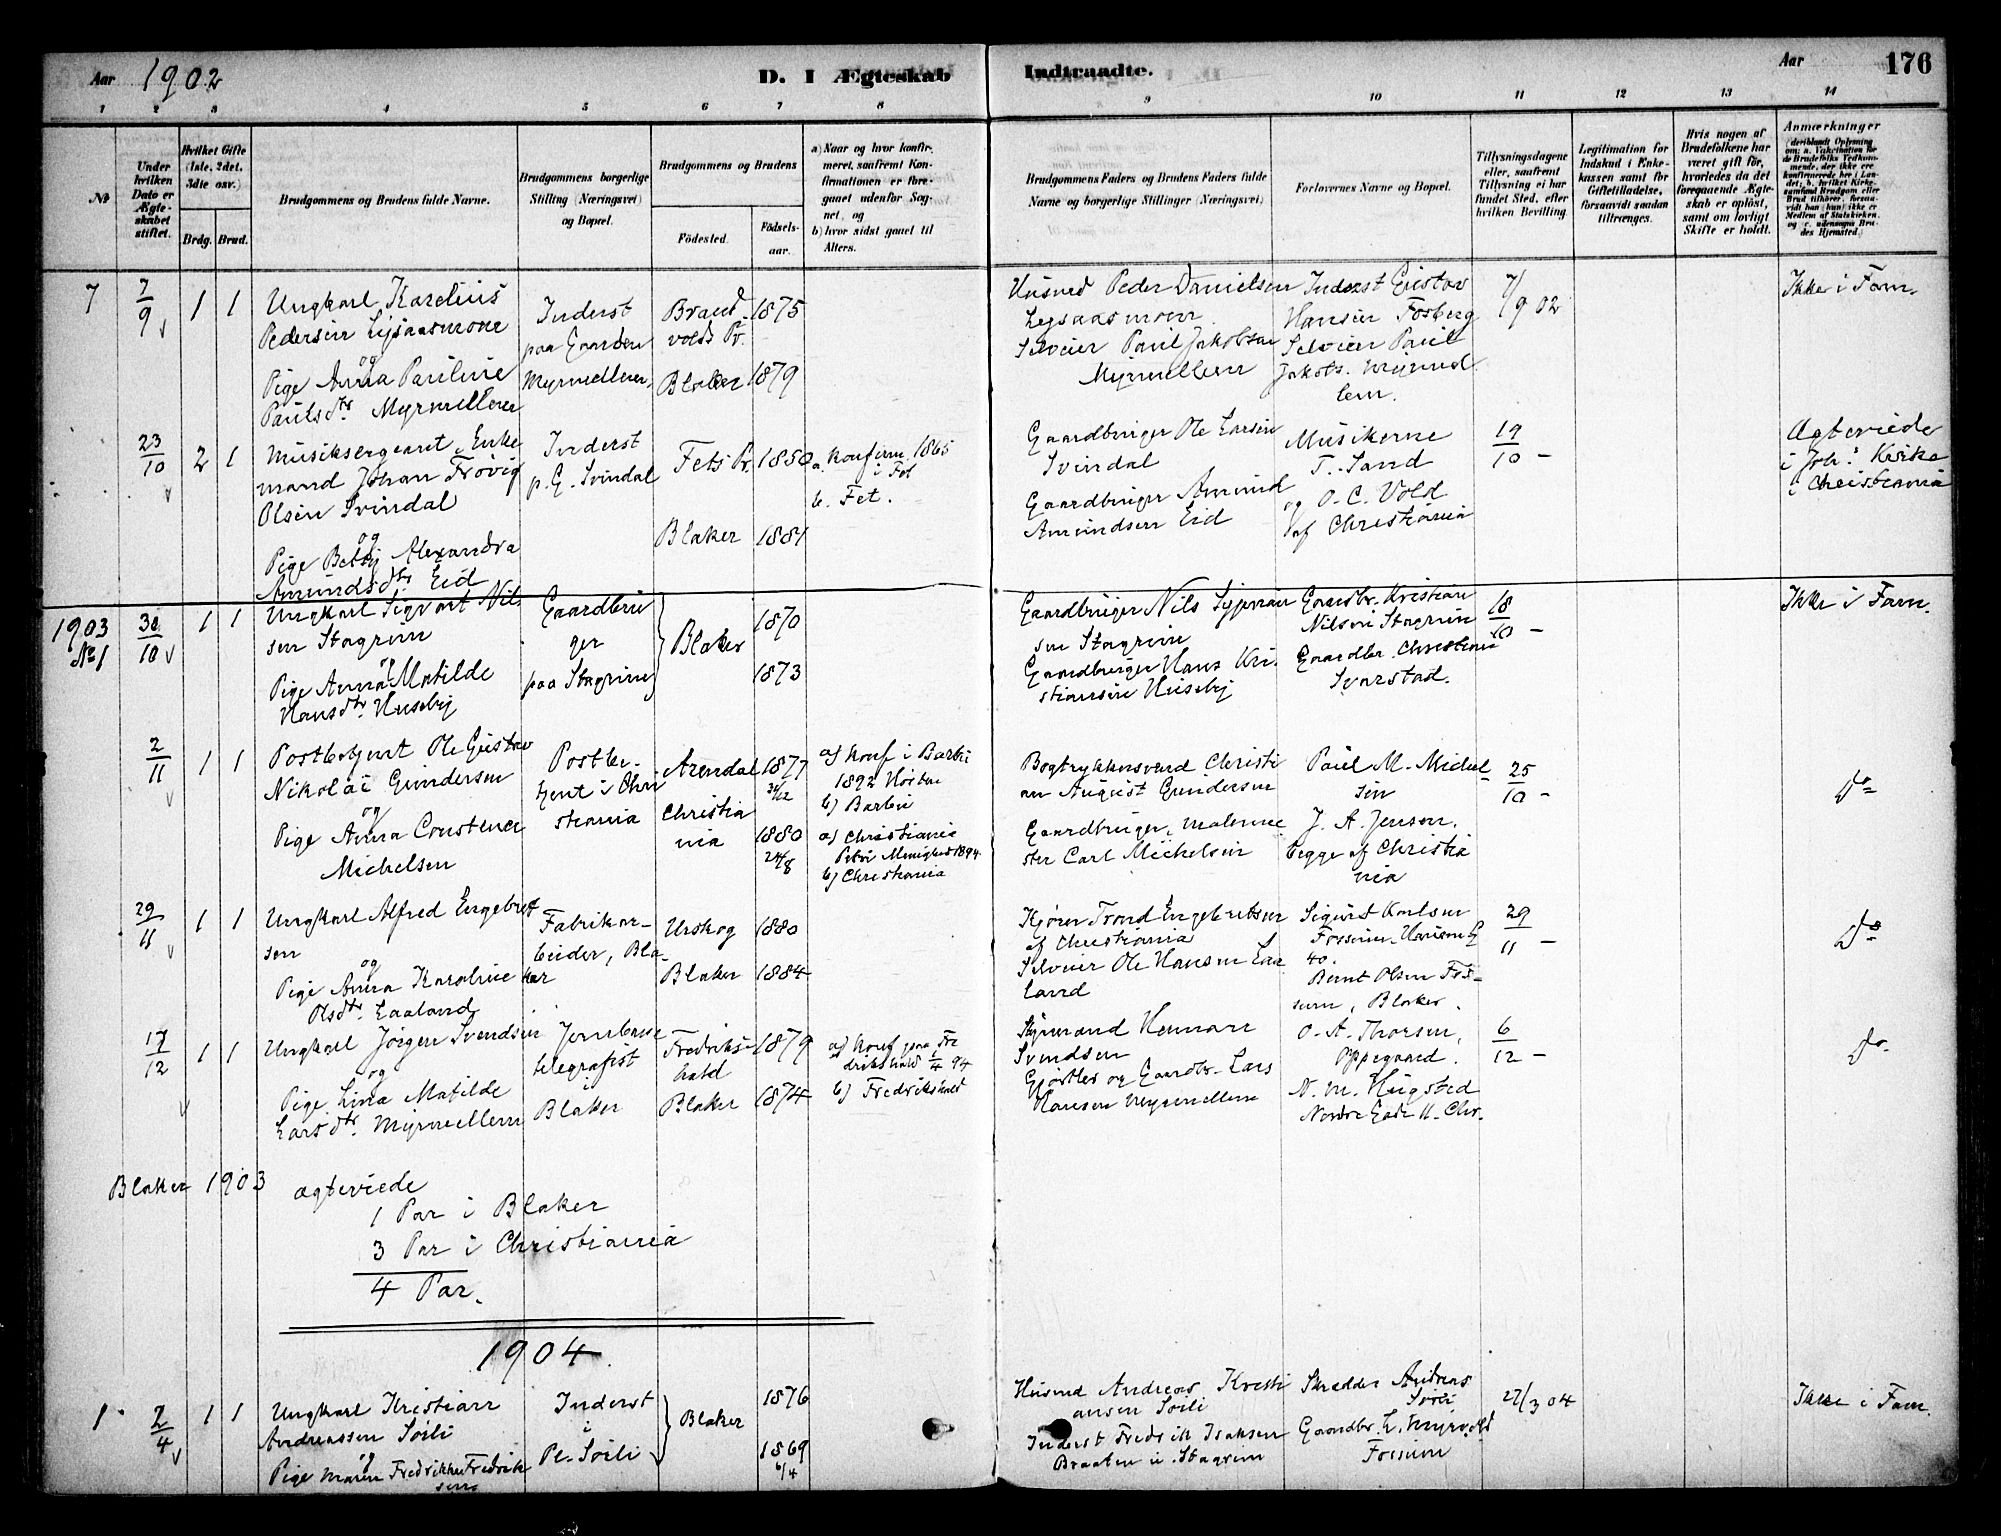 Aar 1902
D. I Ægteskab
Indtraadte.
Aar
176
1 2 3 4 5 6 7 8 9 10 11 12 13 14
No
Under hvilken Dato er Ægteskabet stiftet.
Hvilket Gifte (1ste, 2det, 3die osv.)
Brdg. Brud.
Brudgommens og Brudens fulde Navne.
Brudgommens borgerlige Stilling (Næringsvei) og Bopæl.
Brudgommens og Brudens
Födested.
Födselsaar.
a) Naar og hvor konfirmeret, saafremt Konfirmationen er foregaaet udenfor Sognet, og
b) hvor sidst gaaet til Alters.
Brudgommens Faders og Brudens Faders fulde Navne og borgerlige Stillinger (Næringsvei)
Forlovernes Navne og Bopæl.
Tillysningsdagene eller, saafremt Tillysning ei har fundet Sted, efter hvilken Bevilling.
Legitimation for Indskud i Enkekassen samt for Giftetilladelse, forsaavidt saadan tiltrænges.
Hvis nogen af Brudefolkene har været gift för, hvorledes da det foregaaende Ægteskab er oplöst, samt om lovligt Skifte er holdt.
Anmærkninger
7
7/9
1 1
Ungkarl Karelius
Pedersen Lysaasmoen
og
Pige Anna Pauline
Paulsdtr. Myrmellem
Inderst
paa Gaarden
Myrmellem.
Brand
volds Pr. 1875
Blaker 1879
Husmd Peder Danielsen
Lysaasmoen
Selveier Paul Jakobsen
Myrmellem
Inderst Gustav
Hansen Fosberg
Selveier Paul
Jakobs. Myrmel
lem.
7/9 02
Ikke i Fam.
23/10
2 1
Musiksergeant, Enke
mand Johan Frövig
Olsen Svindal
og
Pige Betsy Alexandra
Amundsdtr Eid
Inderst
p. G. Svindal
Fets Pr. 1850
Blaker 1881
a. Konfirm. 1865
i Fet
b. Fet.
Gaardbruger Ole Larsen
Svindal
Gaardbruger Amund
Amundsen Eid
Musikerne
T. Sand
og O. C. Vold
af Christiania
19/10 -
Ægteviede
i Joh.s Kirke
i Christiania
1903
No 1
30/10
1 1
Ungkarl Sigvart Nil
sen Stagrim
og
Pige Anna Matilde
Hansdtr. Huseby
Gaardbru
ger
paa Stagrim
Blaker
1870
1873
Gaardbruger Nils
sen Stagrim
Gaardbruger Hans Kri
stiansen Huseby
Gaardbr. Kristian
Nilsen Stagrim
Gaardbr. Christian
Svarstad.
18/10 -
Ikke i Fam.
2/11
1 1
Postbetjent Ole Gustav
Nikolai Gundersen
og
Pige Anna Constance
Michelsen
Postbe-
tjent i Chri
stiania
Arendal 1877
Christia
nia 1880
24/8
a) Konf i Barbu
1892 Høsten
b) Barbu
a) Christiania
Petri Menighed 1894
b) Christiania
Bogtrykkersvend Christi
an August Gundersen
Gaardbruger, malerme
ster Carl Michelsen
Paul M. Michel
sen
J. A. Jensen.
begge af Christia
nia
25/10 -
Do
29/11
1 1
Ungkarl Alfred Engebret
sen
og
Pige Anna Karoline
Olsdtr. Laaland
Fabrikar-
beider, Bla-
ker
Urskog 1880
Blaker 1884
Kjører Trond Engebretsen
af Christiania
Selveier Ole Hansen Laa
land
Sigurd Karlsen
40.
Bernt Olsen Fos-
sum, Blaker.
29/11 -
Do
17/12
1 1
Ungkarl Jörgen Svendsen
og
Pige Lina Matilde
Larsdtr. Myrmellem
Jernbane
telegrafist
i
Blaker
Fredriks-
hald 1879
Blaker 1874
a) Konf paa Fre
drikshald 1/4 94
b) Fredrikshald
Styrmand Herman
Svendsen
Gjästbr og Gaardbr. Lars
Hansen Myrmellem
O. A. Thoresen,
Oppegaard.
N. M. Hugsted
Nordre Gade 11. Chr.
6/12 -
Do.
Blaker 1903 ægteviede
1 Par i Blaker
3 Par i Christiania
4 Par.
1904
1
2/4
1 1
Ungkarl Kristian
Andreassen Soili
og
Pige Maren Fredrikke Fredrik
sen
Inderst
i
Pl. Soili
Blaker
1876
1869
6/4
Husmd Andreas Kristi
ansen Soili
Inderst Fredrik Isaksen
Braaten u. Stagrim
Skrædder Andreas
Soili
Gaardbr. L. Myrvold
Fossum
27/3 04
Ikke i Fam.